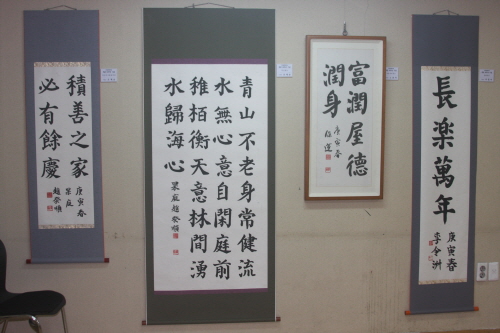 積善之家
必有餘慶
庚寅春
趙癸順
青山不老身常健流
水無心意自閑庭前
稚栢衡天意林間湧
水歸海心
庭趙癸順
富潤屋德
潤身
庚寅春
長楽萬年
庚寅春
李令洲